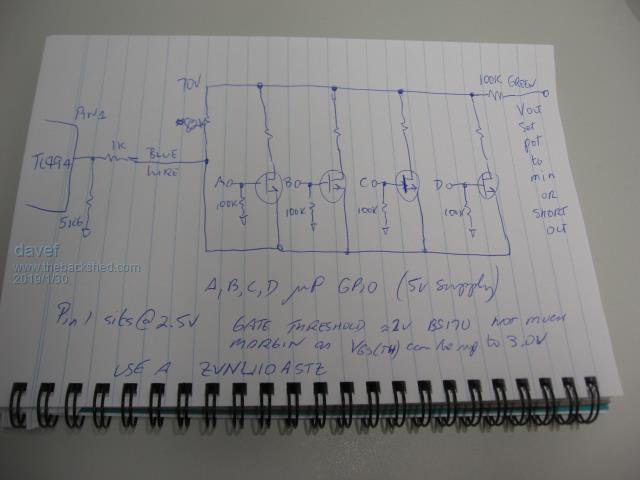 70V
100K GREEN
PIN 1
TL494
1K
BLUE
WIRE
5K6
A
B
C
D
100K
100K
100K
100K
Vout
Set
pot
to
min
OR
SHORT
OUT
davef
www.thebackshed.com
2019/1/30
A, B, C, D µP GPIO (5V Supply)
Pin 1 sits @ 2.5V
GATE THRESHOLD ≈2V BS170 Not much
MARGIN as VGS(TH) can be up to 3.0V
USE A ZVNL110ASTZ